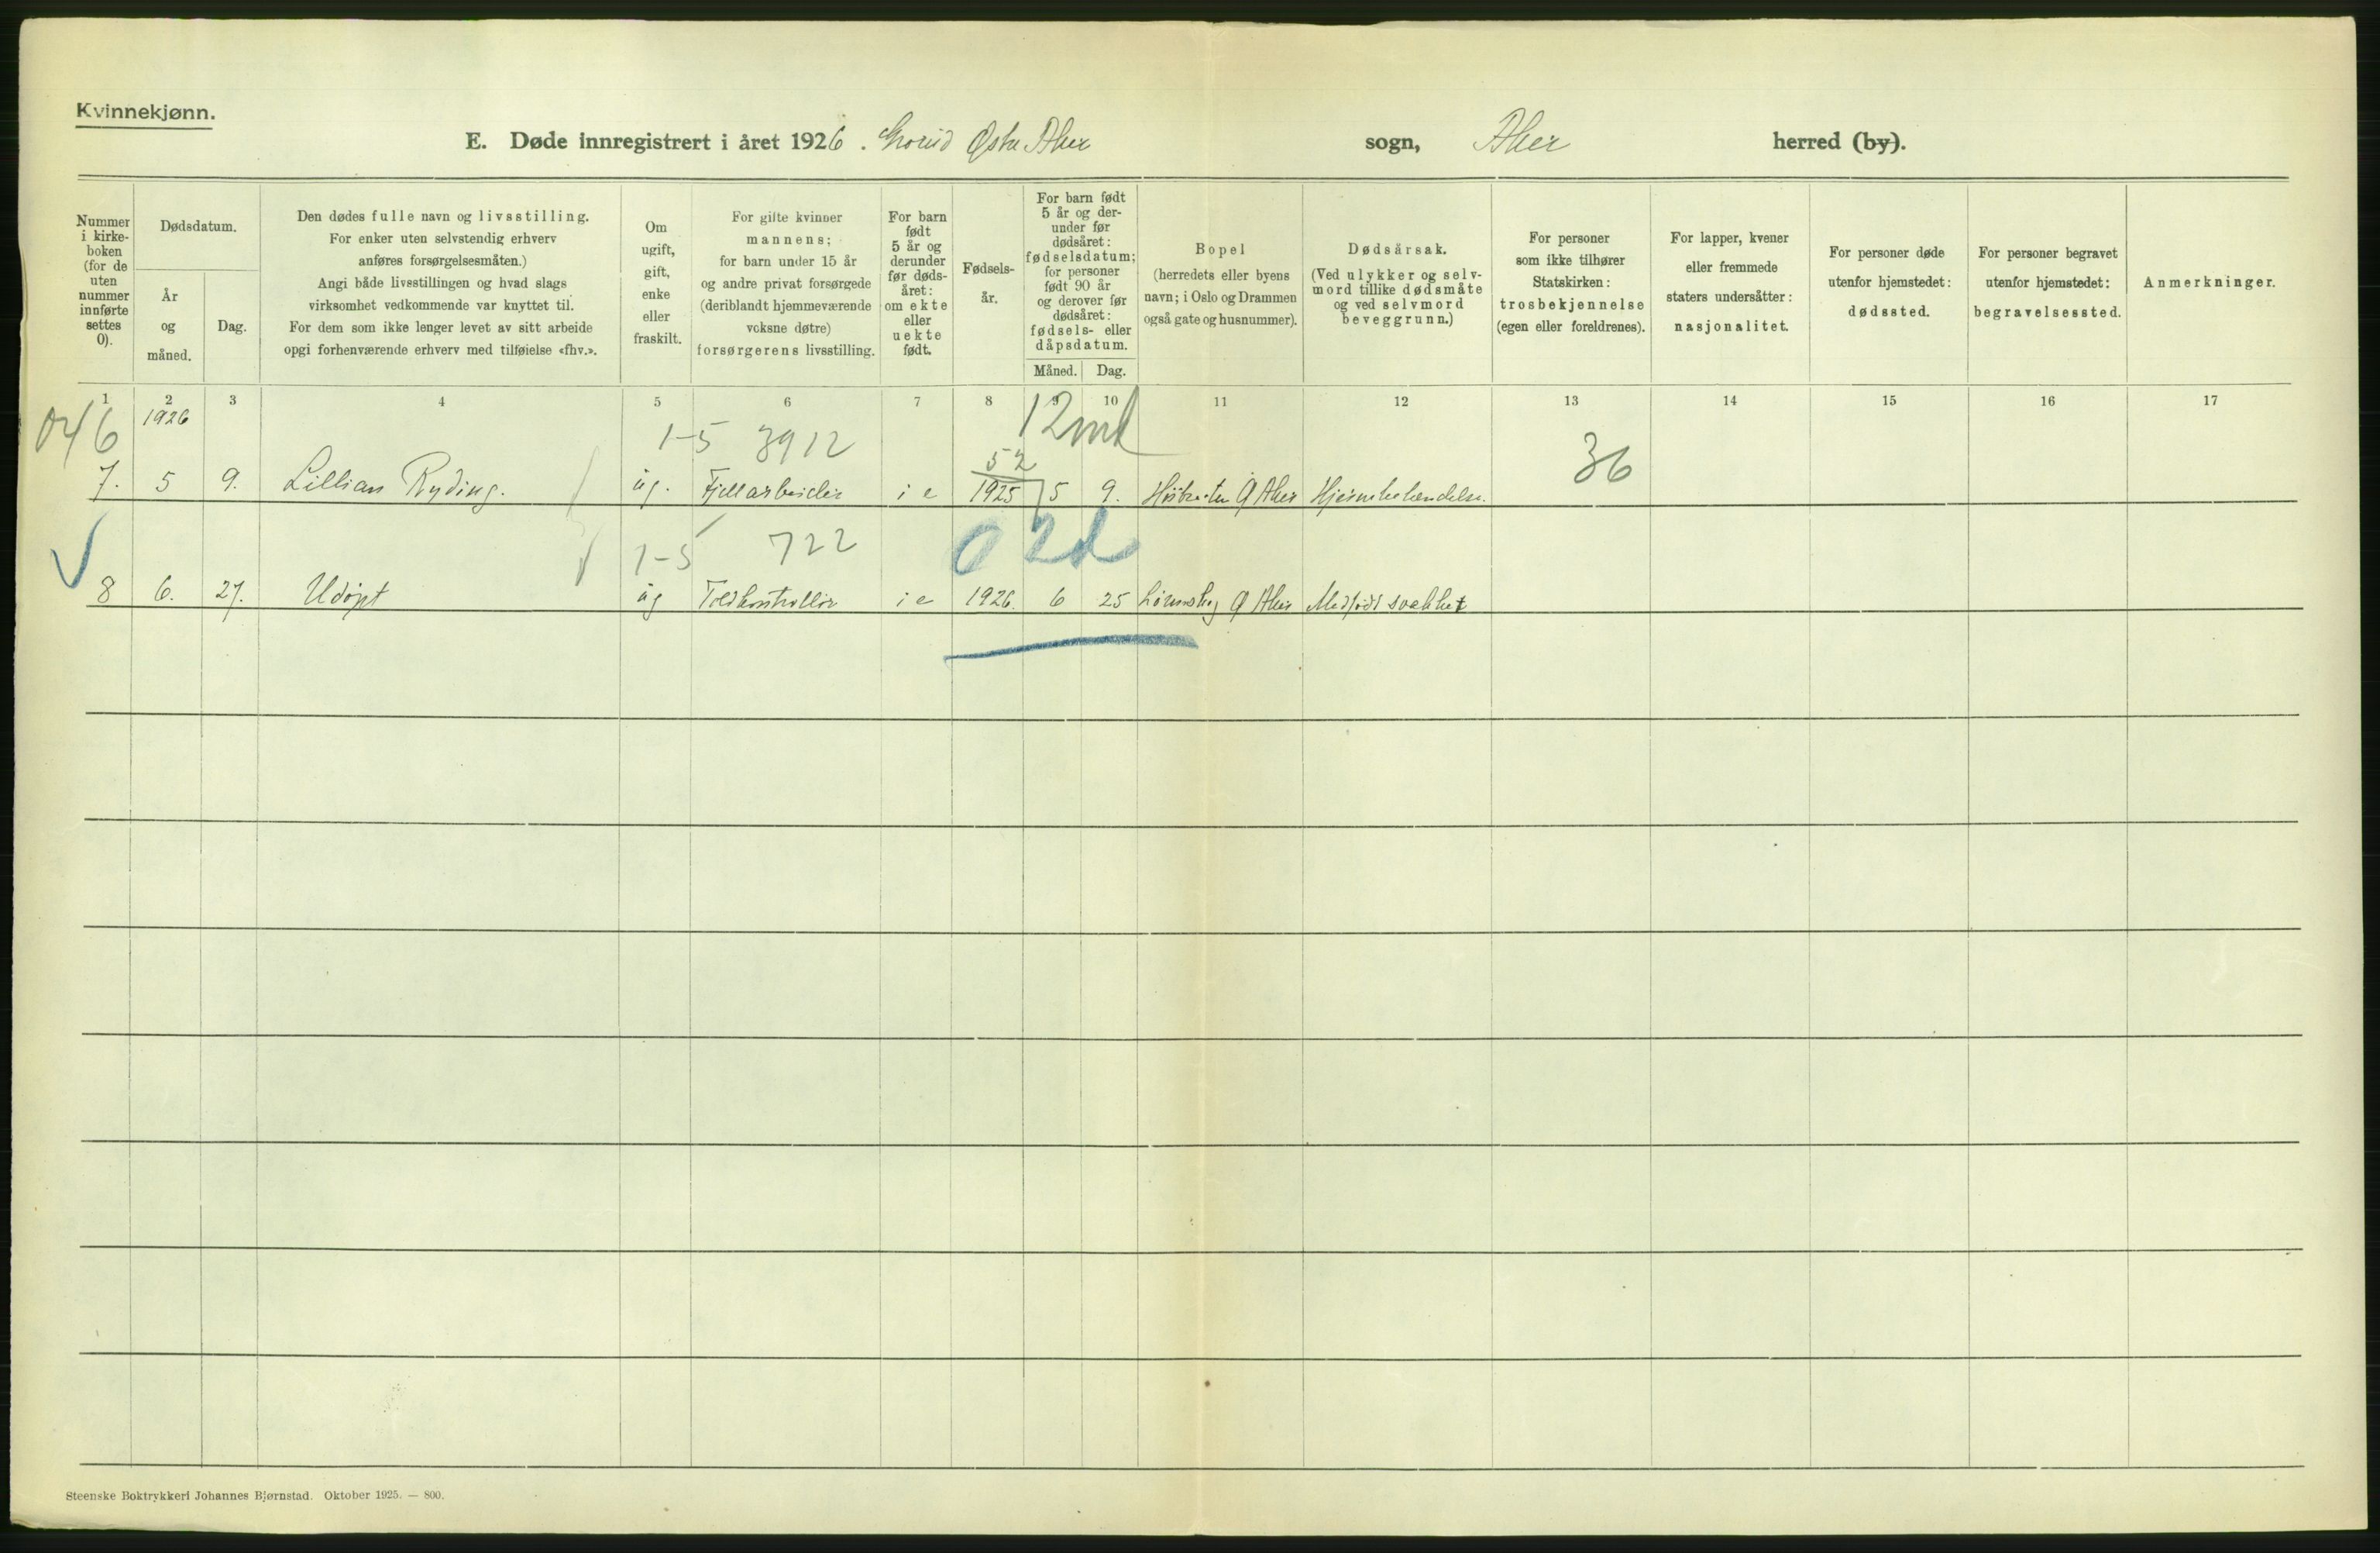 Kvinnekjønn.
E. Døde innregistrert i året 1926. Grorud Østre Aker sogn, Aker herred (by).
Nummer i kirke-boken (for de uten nummer innførte settes 0).
Dødsdatum.
År og måned.
Dag.
Den dødes fulle navn og livsstilling.
For enker uten selvstendig erhverv
anføres forsørgelsesmåten.)
Angi både livsstillingen og hvad slags
virksomhet vedkommende var knyttet til.
For dem som ikke lenger levet av sitt arbeide
opgi forhenværende erhverv med tilføielse «fhv.».
Om
ugift,
gift,
enke
eller
fraskilt.
For gifte kvinner
mannens;
for barn under 15 år
og andre privat forsørgede
(deriblandt hjemmeværende
voksne døtre)
forsørgerens livsstilling.
For barn
født
5 år og
derunder
før døds-
året:
om ekte
eller
uekte
født.
Fødsels-
år.
For barn født
5 år og der-
under før
dødsåret:
fødselsdatum;
for personer
født 90 år
og derover før
dødsåret:
fødsels- eller
dåpsdatum.
Måned. Dag.
Bopel
(herredets eller byens
navn; i Oslo og Drammen
også gate og husnummer).
Dødsårsak.
(Ved ulykker og selv-
mord tillike dødsmåte
og ved selvmord
beveggrunn.)
For personer
som ikke tilhører
Statskirken:
trosbekjennelse
(egen eller foreldrenes).
For lapper, kvener
eller fremmede
staters undersåtter:
nasjonalitet.
For personer døde
utenfor hjemstedet:
dødssted.
For personer begravet
utenfor hjemstedet:
begravelsessted.
Anmerkninger.
1 2 3 4 5 6 7 8 9 10 11 12 13 14 15 16 17
1926
1-5 3912 12 md 36
52
7. 5 9. Lillian Ryding. ug. Fjellarbeider i e 1925 5 9. Ø Aker
1-5 722 0 2d
8 6. 27. Udøpt ug Toldkontrollør i e 1926. 6 25 Lørenskog Ø Aker Medfødt svakhet
Steenske Boktrykkeri Johannes Bjørnstad. Oktober 1925. — 800.